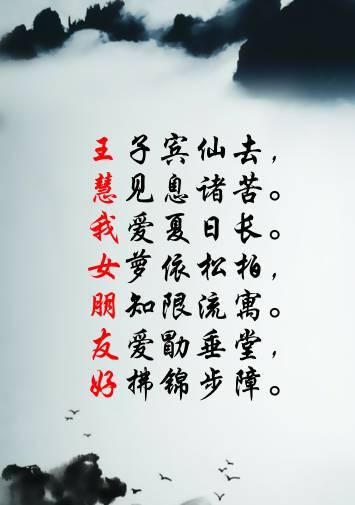 王子宾仙去，
慧见息诸苦。
我爱夏日长。
女萝依松柏，
朋知限流寓。
友爱勖垂堂，
好拂锦步障。